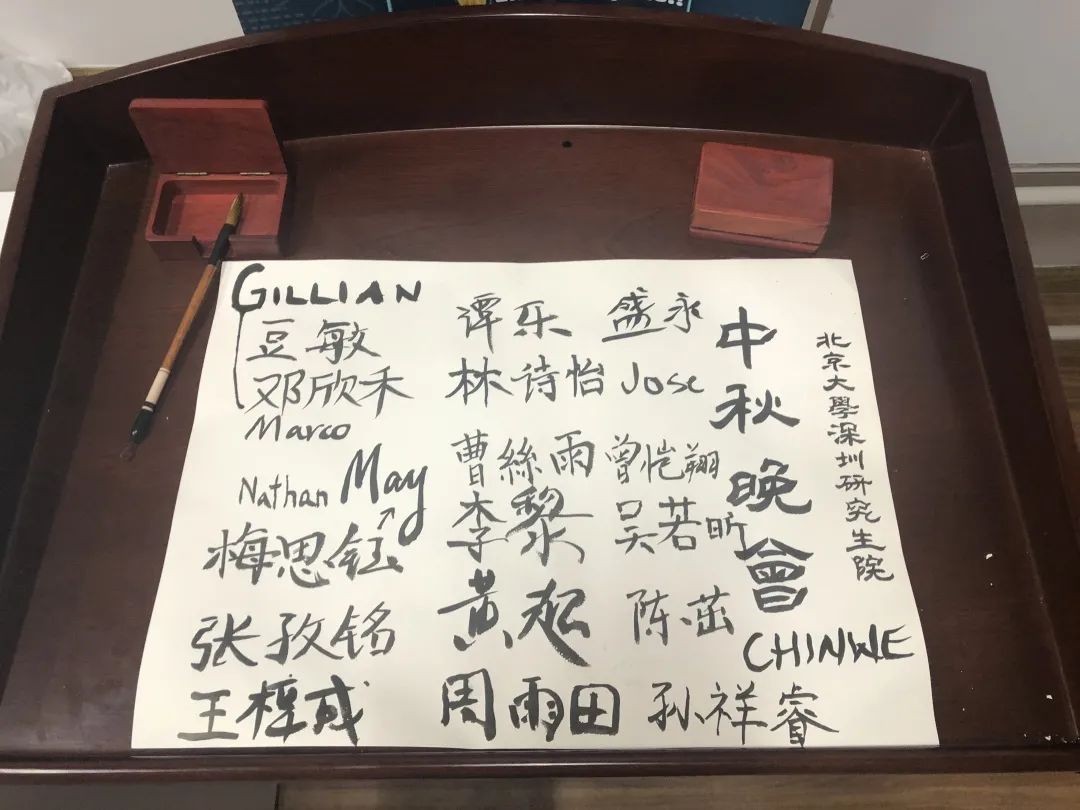 北京大學深圳研究生院
中秋晚會
CHINWE
盛永
Jose
曾恺翔
吴若昕
陈茁
孙祥睿
谭乐
林诗怡
曹絲雨
李黎
黄起
周雨田
GILLIAN
豆敏
邓欣禾
Marco
Nathan May
梅思钰
张孜铭
王梓成